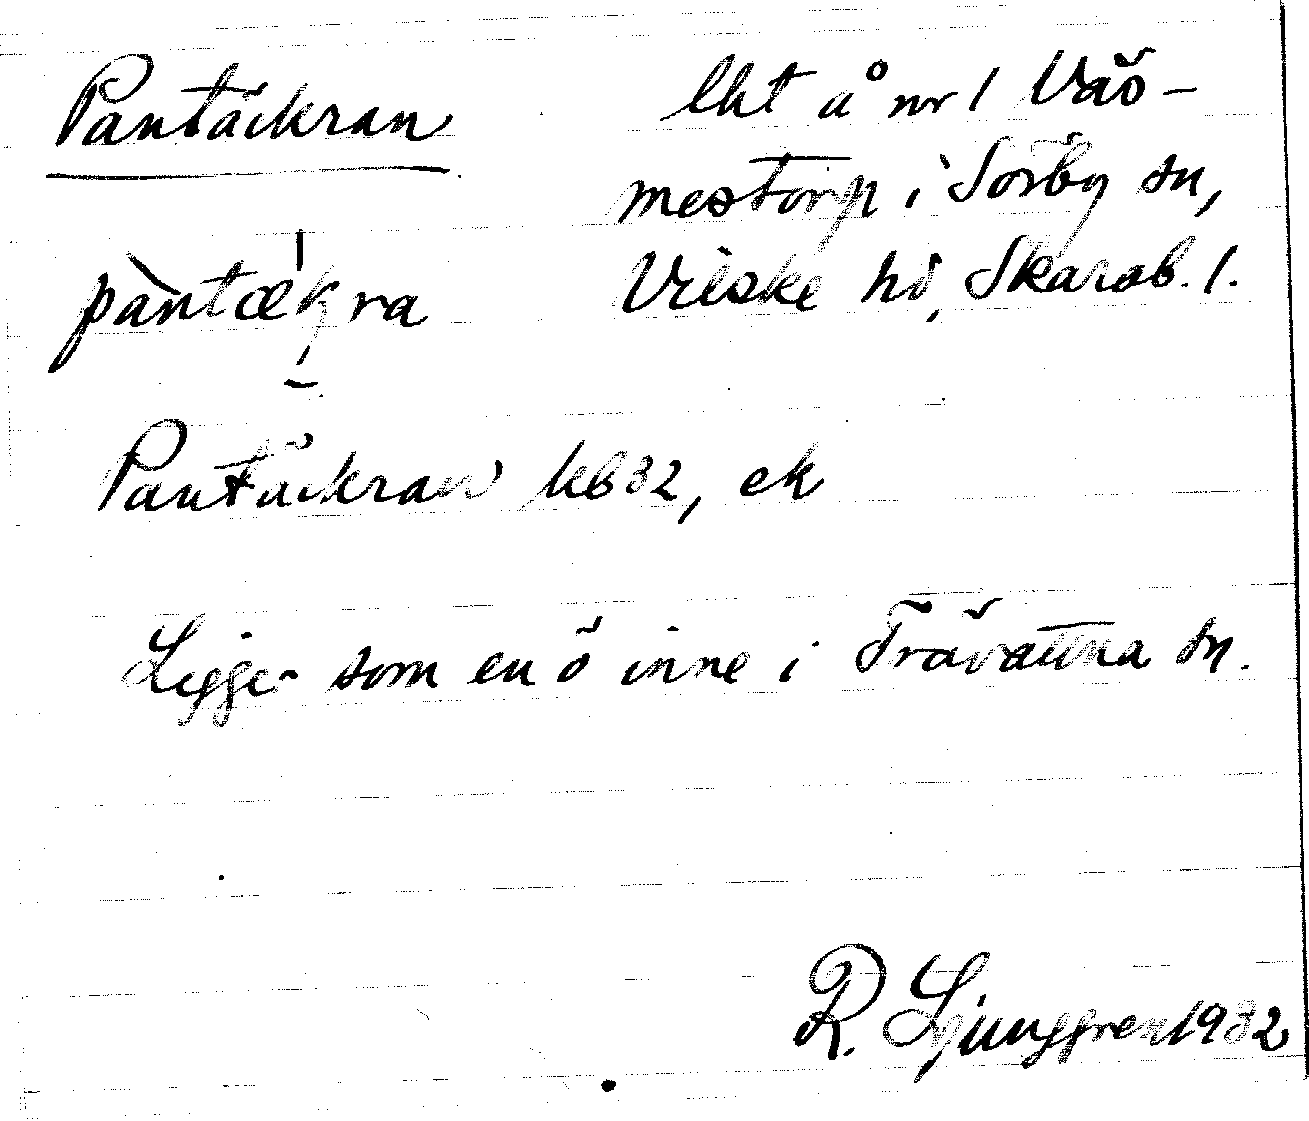 Pantäckran
lht å nr 1 Väs-
mestorp i Sörby sn,
Vilske hd, Skarab. l.
pàntækra
Pantäckran kb 32, ek
Ligger som en ö inne i Trävattna sn.
R. Ljunggren 1932